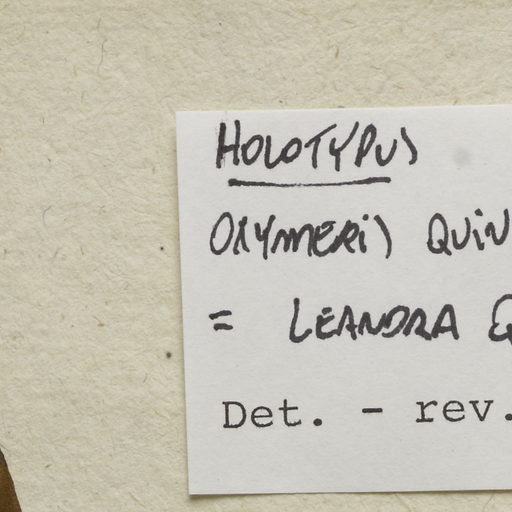 HOLOTYPUS
OXYMERIS QUIN
= LEANDRA Q
Det. - rev.